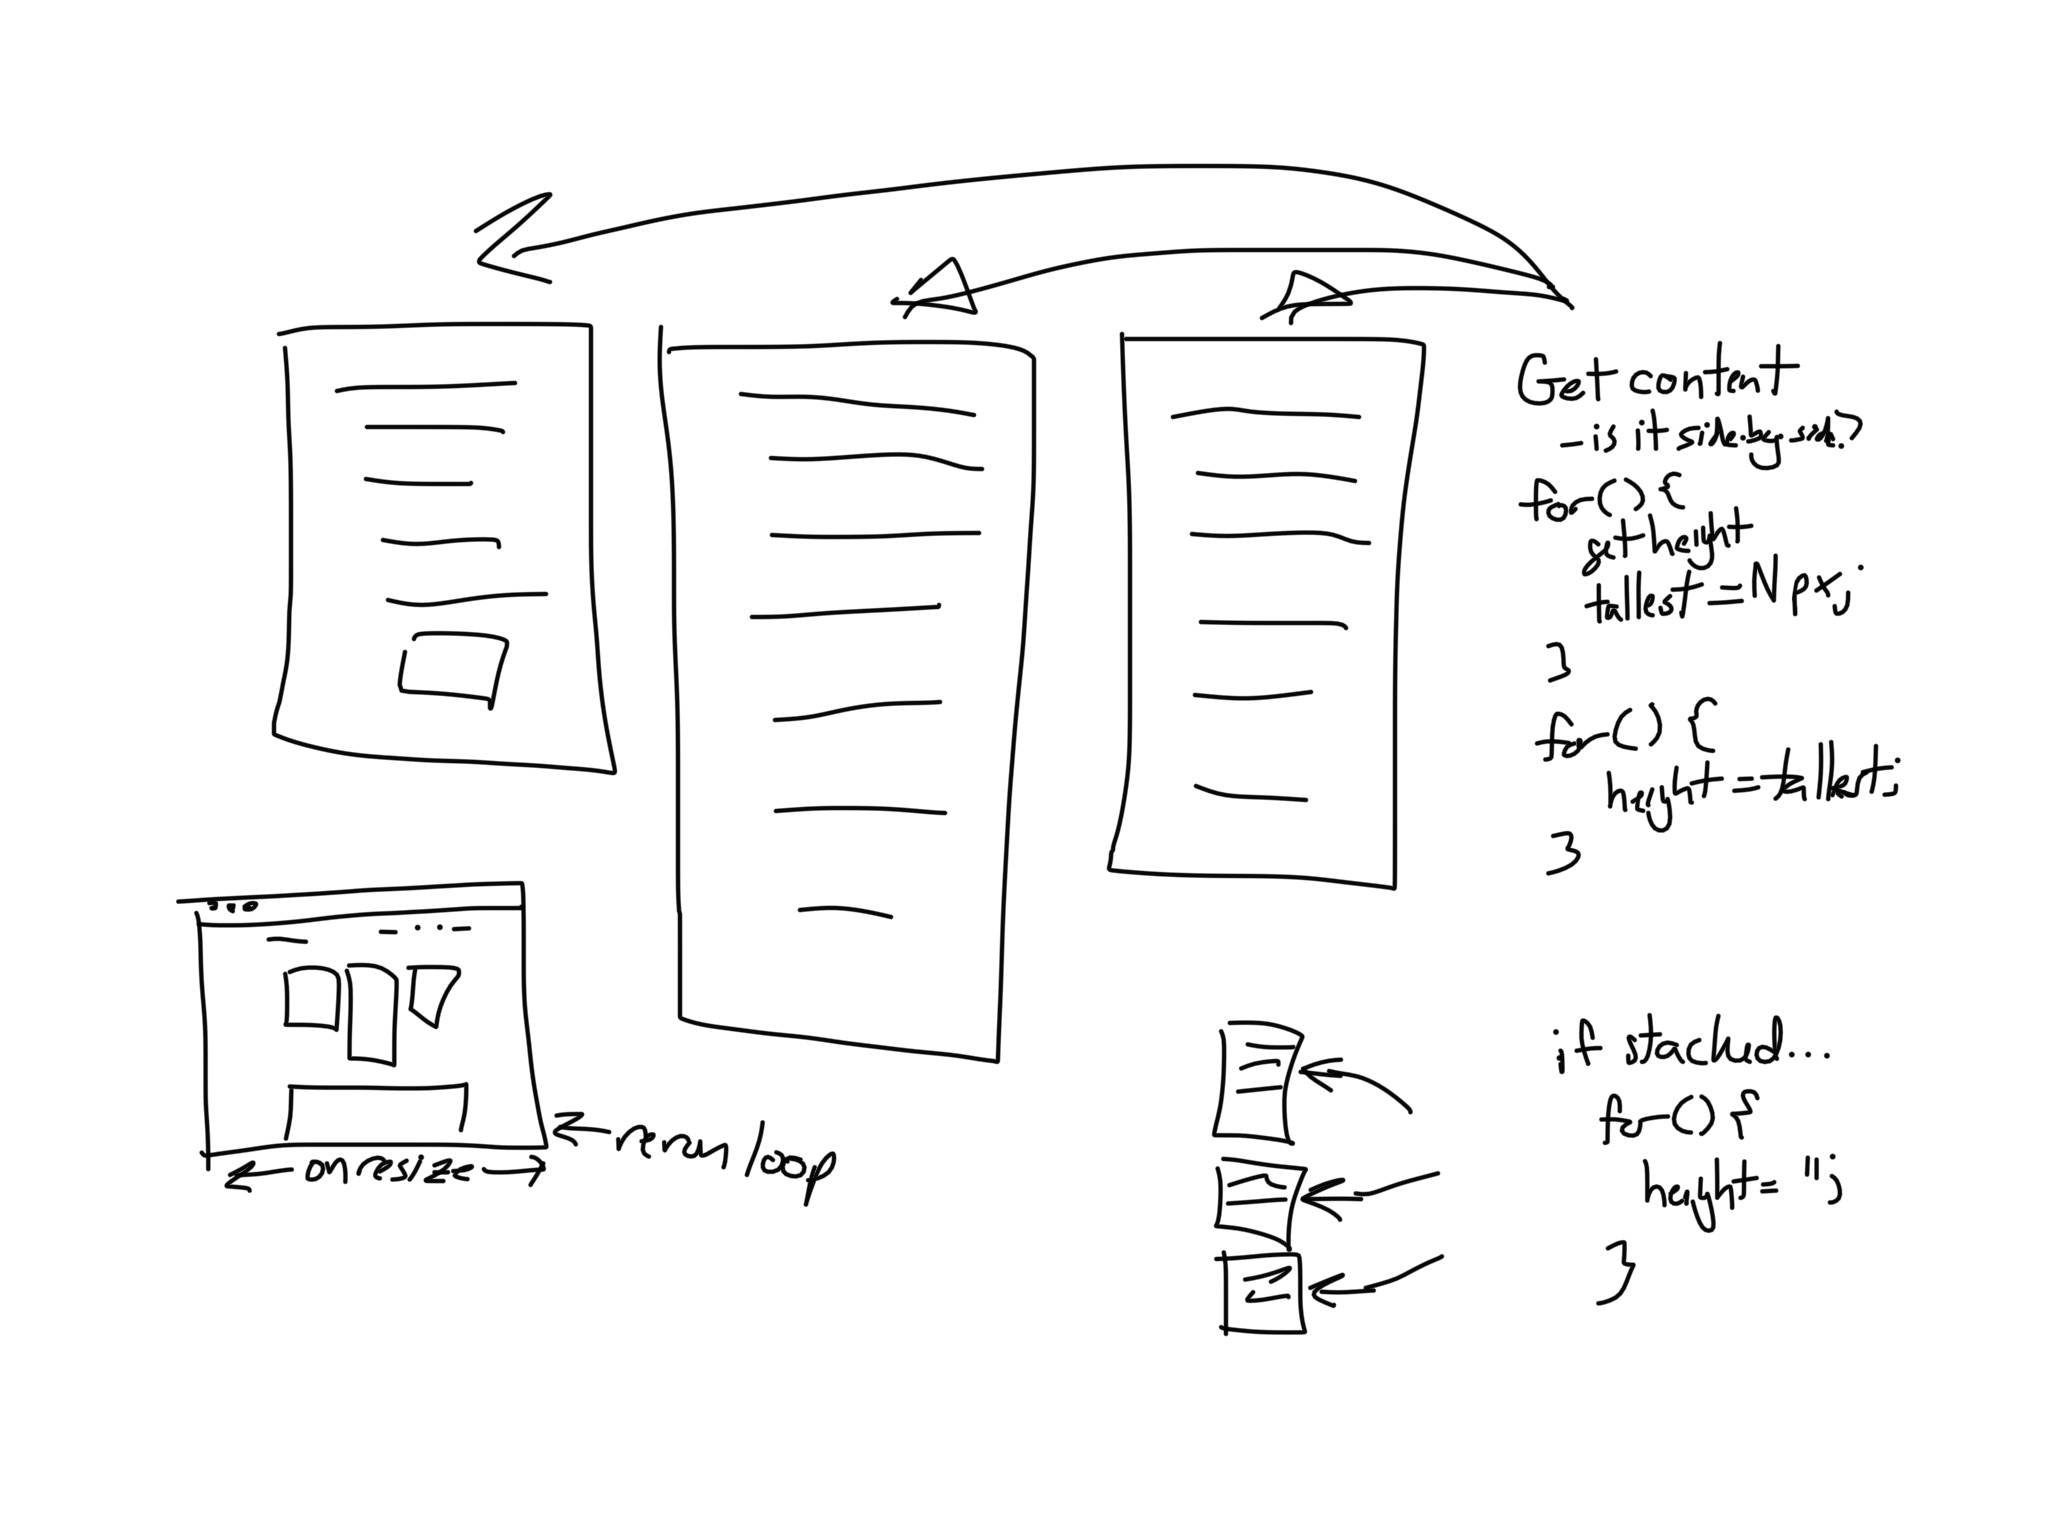 Get content
- is it side-by-side?
for() {
get height
tallest = N px;
}
for() {
height = tallest;
}
on resize
rerun loop
if stacked...
for() {
height = '';
}